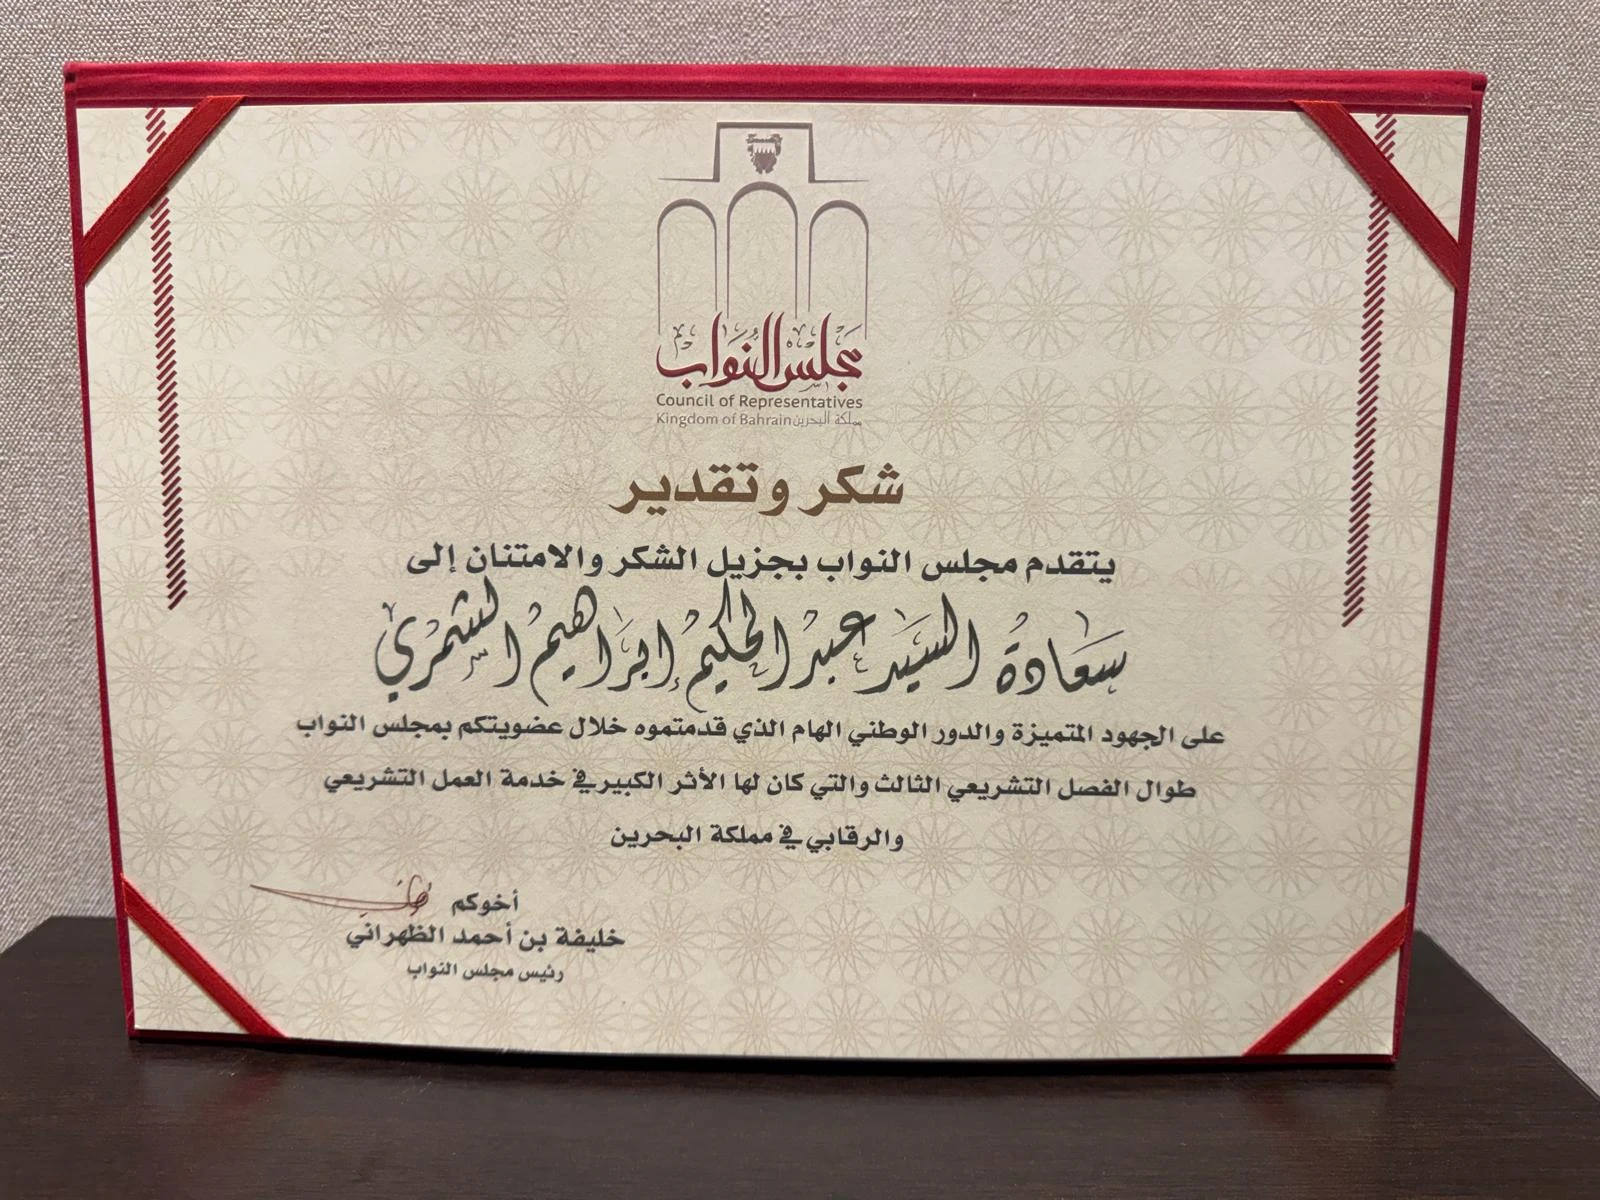 مجلس النواب
Council of Representatives
Kingdom of Bahrain مملكة البحرين
شكر وتقدير
يتقدم مجلس النواب بجزيل الشكر والامتنان إلى
سعادة السيد عبدالحكيم إبراهيم الشمري
على الجهود المتميزة والدور الوطني الهام الذي قدمتموه خلال عضويتكم بمجلس النواب
طوال الفصل التشريعي الثالث والتي كان لها الأثر الكبير في خدمة العمل التشريعي
والرقابي في مملكة البحرين
أخوكم
خليفة بن أحمد الظهراني
رئيس مجلس النواب